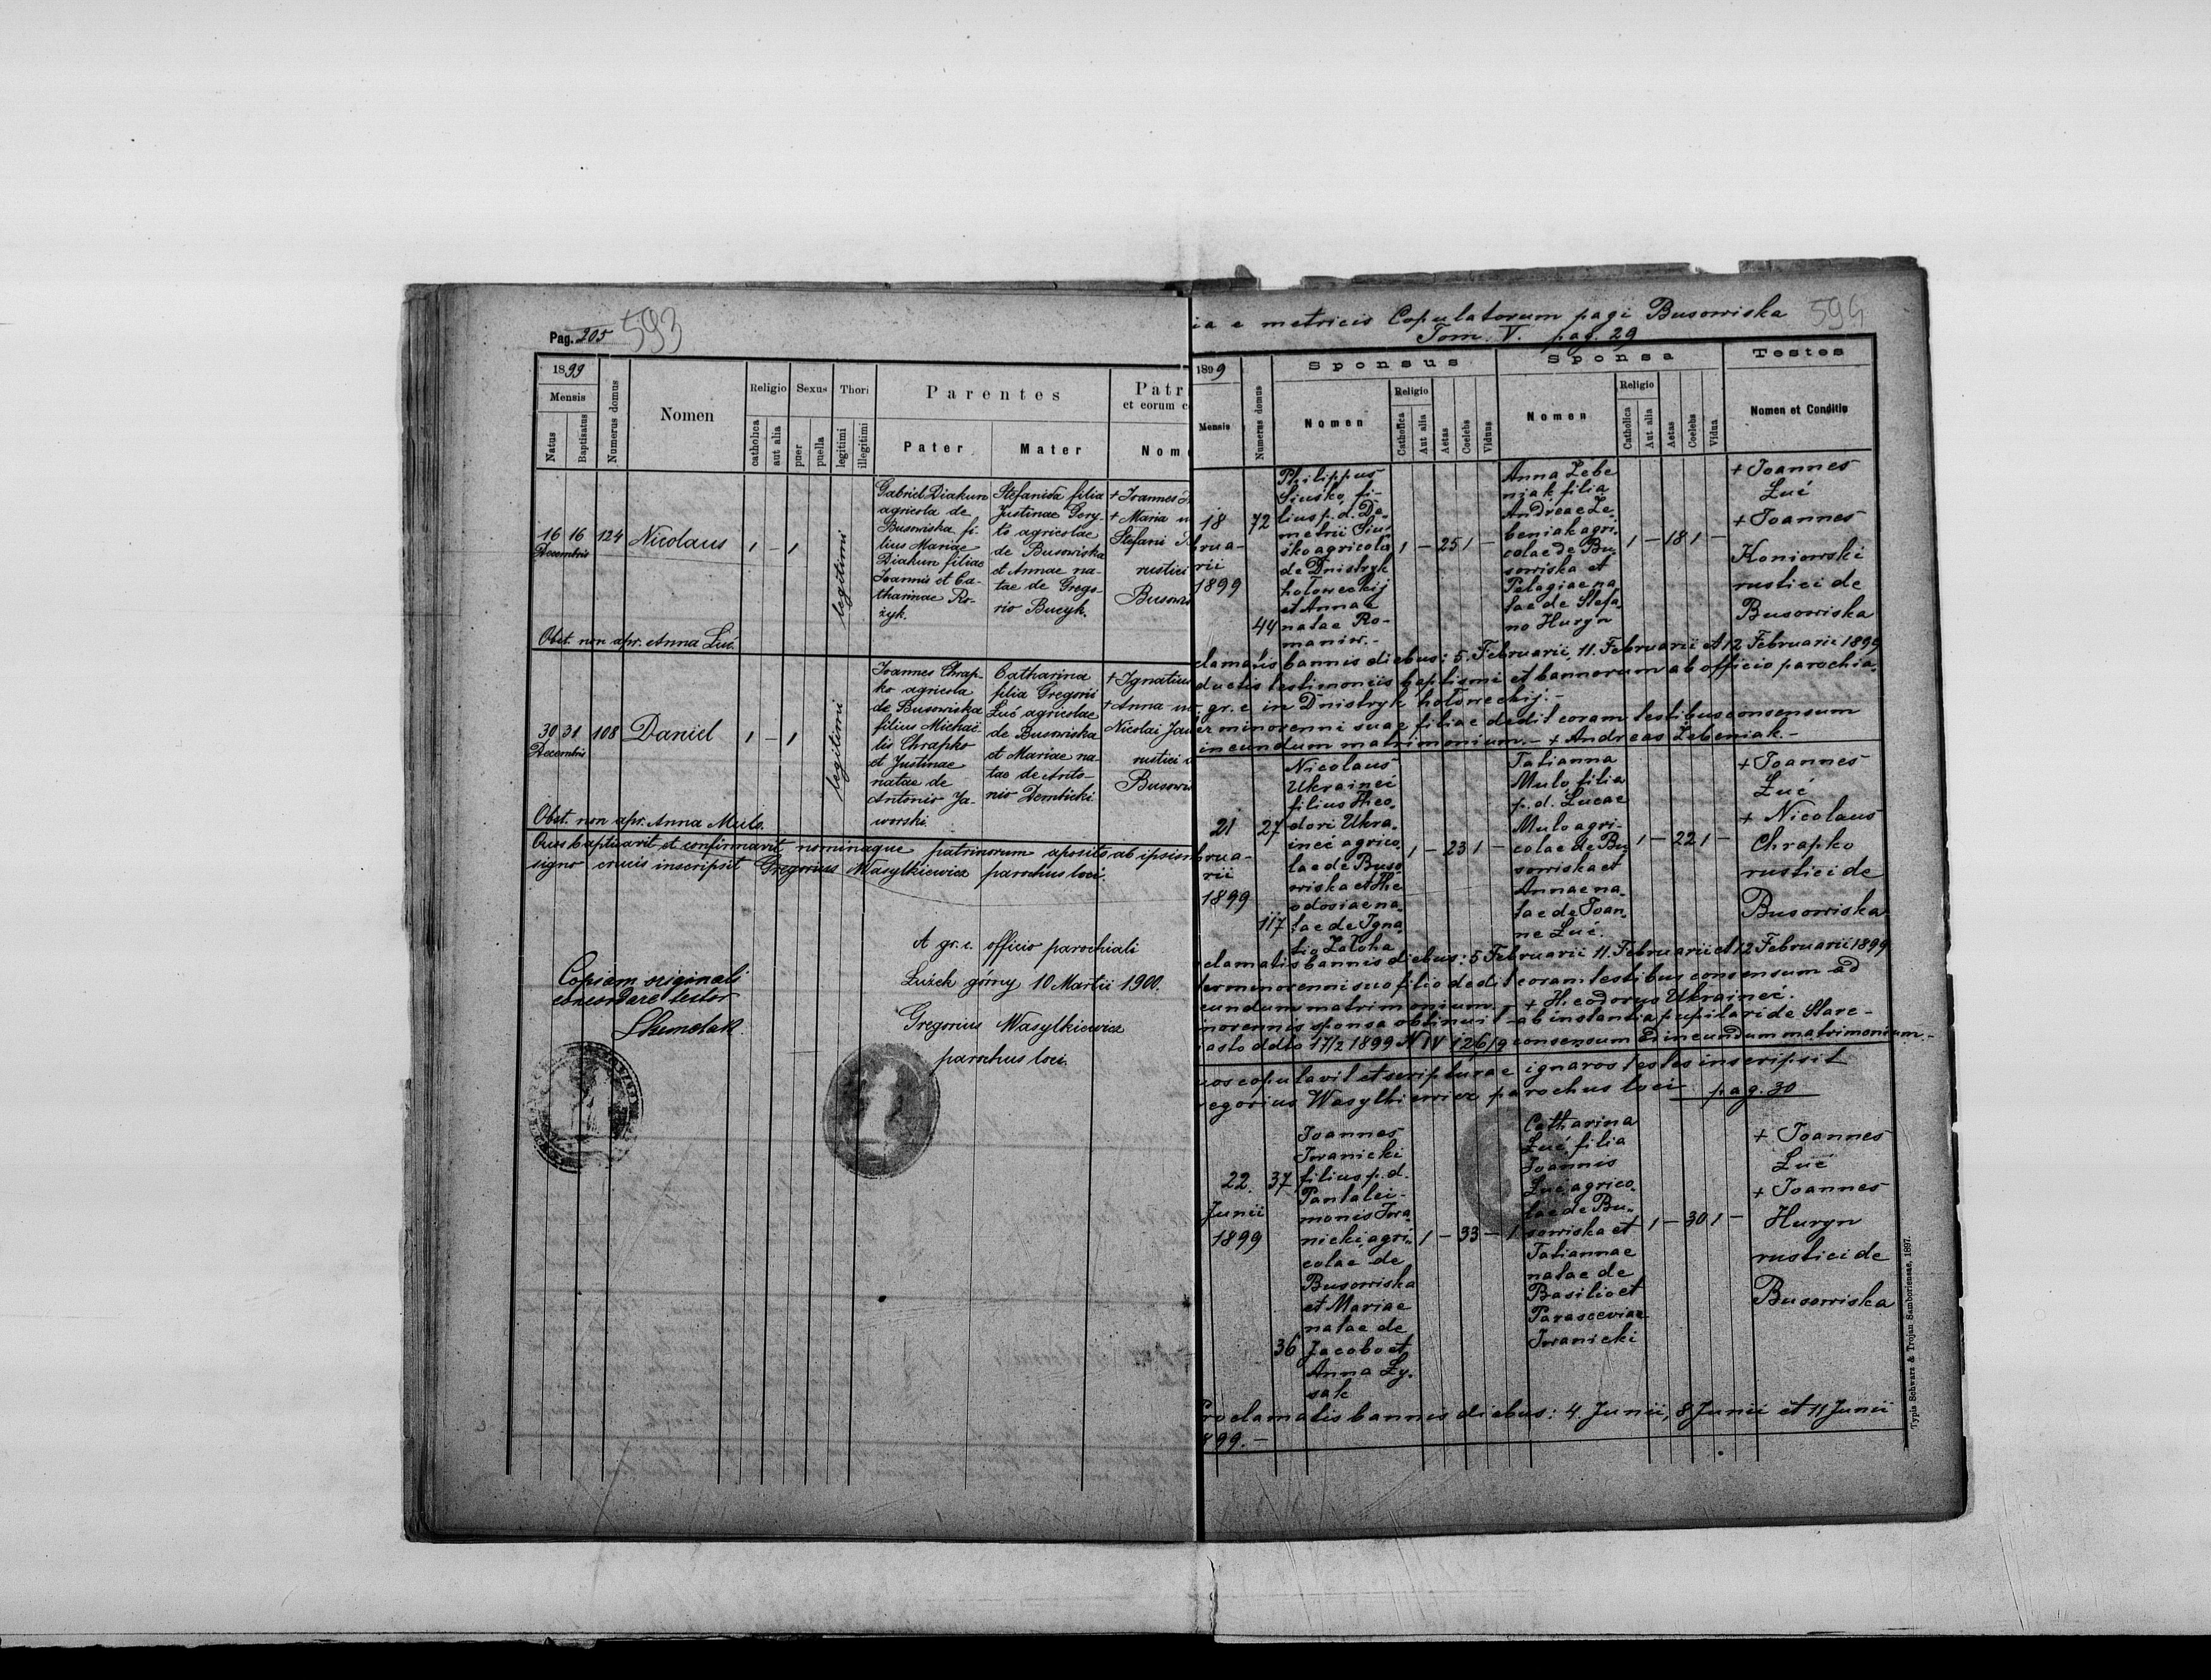 Pag. 205 593
1899
Mensis
Natus
Baptisatus
Numerus domus
Nomen
Religio
catholica
aut alia
Sexus
puer
puella
Thori
legitimi
illegitimi
Parentes
Pater
Mater
Patr
et eorum c
Nom
16 16 124 Nicolaus 1 - 1
Decembris
legitimi
Gabriel Diakun
agricola de
Busowiska fi-
lius Mariae
Diakun filiae
Joannis et Ca-
tharinae Ro-
żyk.
Stefanida filia
Justinae Gory-
agricolae
de Busowiska
et Annae na-
tae de Grego-
rio Bucyk.
+ Joannes
+ Maria u
Stefani
rustici
Busowis
Obst. non apr. Anna Łuć.
30 31 108 Daniel 1 - 1
Decembris
legitimi
Joannes Chrap-
ko agricola
de Busowiska
filius Michaë-
lis Chrapko
et Justinae
natae de
Antonio Ja-
worski.
Catharina
filia Gregorii
Łuć agricolae
de Busowiska
et Mariae na-
tae de Anto-
nio Dembicki
+ Ignatius
+ Anna ux
Nicolai Jaw
rustici
Busowis
Obst. non apr. Anna Mulo.
Quos baptisavit et confirmavit nominaque patrinorum aposito ab ipsis
signo crucis inscripsit Gregorius Wasylkiewicz parochus loci.
A gr. c. officio parochiali
Łużek górny 10 Martii 1900.
Gregorius Wasylkiewicz
parochus loci.
Copiam originali
concordare testor
ia e metricis Copulatorum pagi Busowiska 594
Tom. V. pag. 29
1899
Mensis
Numerus domus
Sponsus
Nomen
Religio
Catholica
Aut alia
Aetas
Coelebs
Viduus
Sponsa
Nomen
Religio
Catholica
Aut alia
Aetas
Coelebs
Vidua
Testes
Nomen et Conditio
18
brua-
rii
1899
72
44
Philippus
Siusko, fi-
lius p. d. De-
metrii Siu-
sko agricola
de Dnistryk
hołoweckij
et Annae
natae Ro-
maniw.-
1 - 25 1 -
Anna Żebe
niak filia
Andreae Że
beniak agri-
colae de Bu
sowiska et
Pelagiae na
tae de Stefa
no Huryn
1 - 18 1 -
+ Joannes
Łuć
+ Joannes
Koniowski
rustici de
Busowiska
clamatis bannis diebus: 5. Februarii, 11. Februarii et 12 Februarii 1899
ductis testimoniis baptismi et bannorum ab officio parochia.
gr. c. in Dnistryk hołoweckij.-
er minorenni suae filiae dedit coram testibus consensum
ineundum matrimonium.- + Andreas Żebeniak.-
21
brua-
rii
1899
27
117
Nicolaus
Ukraineć
filius Theo-
dori Ukra-
ineć agrico
lae de Buso
wiska et The
odosiae na-
tae de Igna
tio Załoha
1 - 23 1 -
Tatianna
Mulo filia
p. d. Lucae
Mulo agri-
colae de Bu
sowiska et
Annae na-
tae de Joan-
ne Łuć.
1 - 22 1 -
+ Joannes
Łuć
+ Nicolaus
Chrapko
rustici de
Busowiska
clamatis bannis diebus: 5 Februarii 11. Februarii et 12 Februarii 1899
ter minorenni suo filio dedit coram testibus consensum ad
eundum matrimonium.- + Theodorus Ukraineć.
norennis sponsa obtinuit ab instantia pupilari de Stare-
asto ddto 17/2 1899 N IV 126/9 consensum ad ineundum matrimonium.-
uos copulavit et scripturae ignaros testes inscripsit
egorius Wasylkiewicz parochus loci pag. 30
22
Junii
1899
37
36
Joannes
Iwanicki
filius p. d.
Pantalei-
monis Iwa-
nicki agri-
colae de
Busowiska
et Mariae
natae de
Jacobo et
Anna Ły-
sak
1 - 33 - 1
Catharina
Łuć filia
Joannis
Łuć agrico-
lae de Bu-
sowiska et
Tatiannae
natae de
Basilio et
Parasceviae
Iwanicki
1 - 30 1 -
+ Joannes
Łuć
+ Joannes
Huryn
rustici de
Busowiska
Proclamatis bannis diebus: 4. Junii, 8 Junii et 11 Junii
899.-
Typis Schwarz & Trojan Samboriensae, 1897.